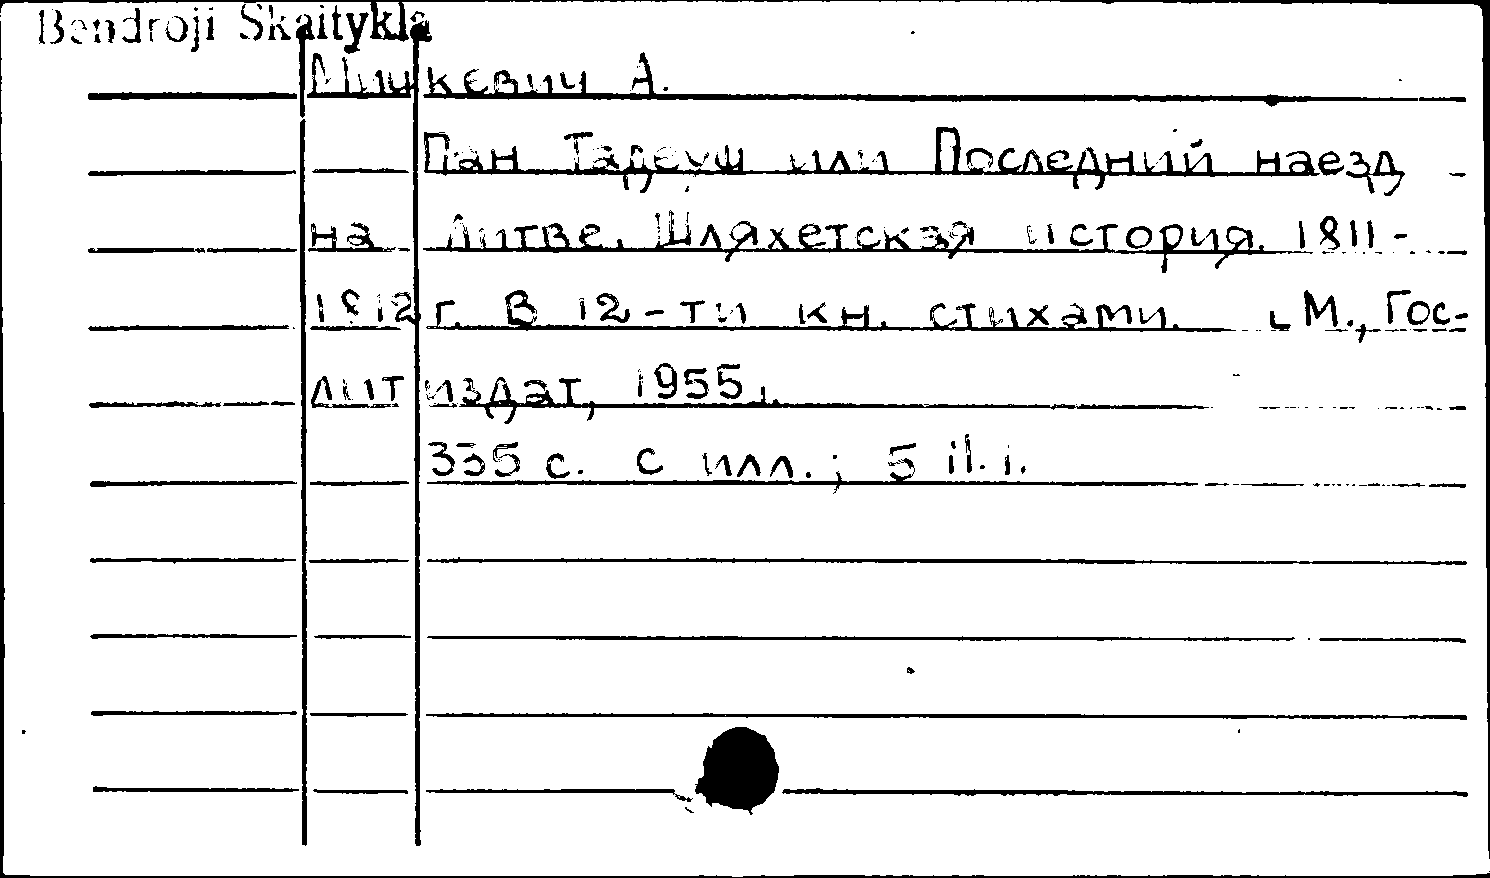 Bendroji Skaitykla
Мицкевич А.
Пан Тадеуш или Последний наезд
на Литве. Шляхетская история. 1811-
1812 г. В 12-ти кн. стихами. М., Гос-
литиздат, 1955 г.
335 с. с илл.; 5 il. l.